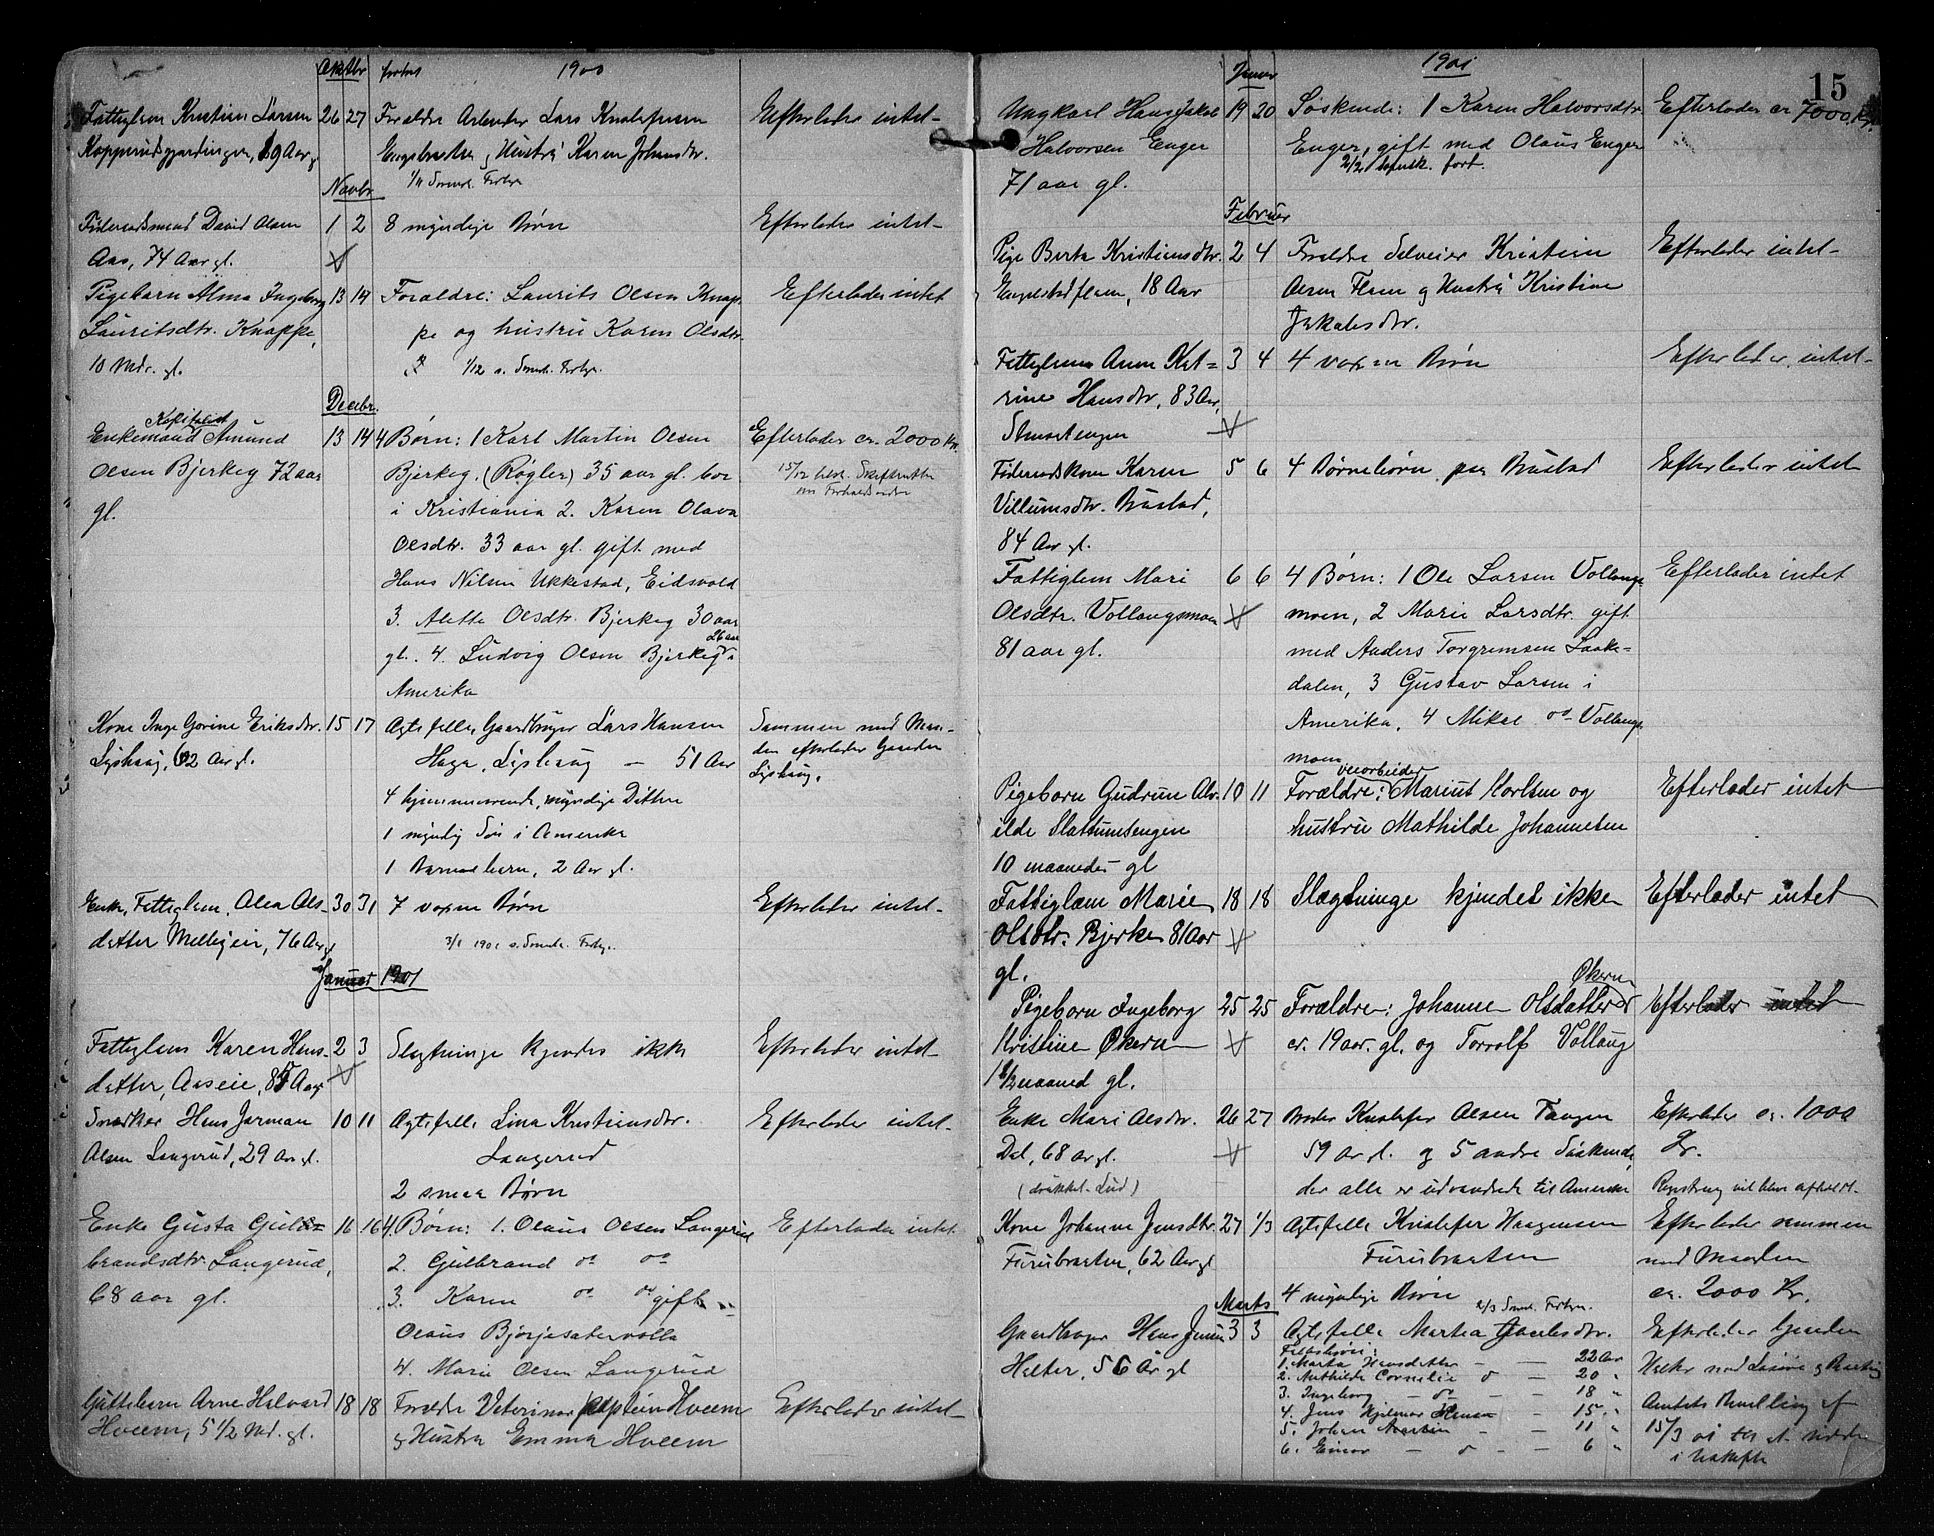 Oktbr forts 1900
Fattiglem Kristian Larsen 26 27 Forældre Arbeider Lars Kristofersen Efterlader intet
19 Aar Engebraaten og Hustru Karen Johansdtr.
Novbr
Føderaadsmand David Olsen 1 2 8 myndige Børn Efterlader intet
Aas, 74 Aar gl.
Pigebarn Alma Ingeborg 13 14 Forældre: Laurits Olsen Knap- Efterlader intet
Lauritsdtr. Knappe, pe og hustru Karen Olsdtr.
10 Mdr. gl. 1/12 s. Smh. Fortegn.
Decebr.
Kapitalist
Enkemand Amund 13 14 4 Børn: 1 Karl Martin Olsen Efterlader ca. 2000 Kr.
Olsen Bjerkeg 72 aar Bjerkeg, (Røgler) 35 aar gl. bor 15/12
gl. i Kristiania 2. Karen Olava
Olsdtr. 33 aar gl. gift med
Hans Nilsen Ukkestad, Eidsvold
3. Alette Olsdtr. Bjerkeg 30 aar
26 aar
gl. 4. Ludvig Olsen Bjerkeg i
Amerika
Kone Inge Gorine Eriksdtr. 15 17 Ægtefelle Gaardbruger Lars Hansen Sammen med Man-
Lyshaug, 62 Aar gl. Haga, Lyshaug — 51 Aar den efterlader Gaarden
Lyshaug.
4 hjemmeværende, myndige Døttre
1 myndig Søn i Amerika
1 Barnebarn, 2 Aar gl.
Enke, Fattiglem, Olea Ols- 30 31 7 voxne Børn Efterlader intet
datter 76 Aar gl 3/1 1901 s. Smh. Fortegn.
Januar 1901
Fattiglem Karen Hans- 2 3 Slegtninge kjendes ikke Efterlader intet
datter, Aaseie, 85 Aar
Snedker Hans Jørman 10 11 Ægtefelle Lina Kristiansdtr. Efterlader intet
Olsen Langerud, 29 Aar gl. Langerud
2 smaa Børn
Enke Gusta Gul- 16 16 4 Børn: 1. Olaus Olsen Langerud Efterlader intet
brandsdtr Langerud, 2. Gulbrand do do
68 aar gl. 3. Karen do do gift m
Olaus Bjørjesætervolla
4. Marie Olsen Langerud
Guttebarn Arne Halvard 18 18 Forældre Veterinær kaptein Hveem Efterlader intet
Hveem, 5 1/2 Md. gl. og Hustru Emma Hveem
15
Januar 1901
Ungkarl Hans Jakob 19 20 Søskende: 1 Karen Halvorsdtr. Efterlader ca 7000 Kr.
Halvorsen Enger Enger, gift med Olaus Enger
71 aar gl. 2/2
Februar
Pige Berta Kristiansdtr. 2 4 Forældre Selveier Kristian Efterlader intet
Engelstadflaen, 18 Aar Olsen Flaen og Hustru Kristine
Jakobsdtr.
Fattiglem Anne Kat- 3 4 4 voxne Børn Efterlader intet
rine Hansdtr, 83 Aar,
Føderaadskone Karen 5 6 4 Børnebørn paa Bustad Efterlader intet
Villumsdtr. Bustad,
84 Aar gl.
Fattiglem Mari 6 6 4 Børn: 1 Ole Larsen Vollaugs Efterlader intet
Olsdtr. Vollaugsmoen moen, 2 Marie Larsdtr. gift
81 aar gl. med Anders Torgrimsen Laake-
dalen, 3 Gustav Larsen i
Amerika, 4 Mikal do Vollaugs
moen
veiarbeider
Pigebarn Gudrun Alv- 10 11 Forældre: Marius Karlsen og Efterlader intet
ilde Slattumsengen hustru Mathilde Johannesen
10 maaneder gl
Fattiglem Marie 18 18 Slægtninge kjendes ikke Efterlader intet
Olsdtr. Bjerke 81 Aar
gl.
Økern
Pigebarn Ingeborg 25 25 Forældre: Johanne Olsdatter Efterlader intet
Kristine Økern ca. 19 aar. gl. og Torolf Vollaug
1 1/2 maaned gl.
Enke Mari Olsdtr. 26 27 Broder Kristofer Olsen Tangen Efterlader ca. 1000
Dal, 68 Aar gl. 59 Aar gl. og 5 andre Søskende, Kr.
der alle er udvandrede til Amerika
Kone Johanne Jensdtr. 27 1/3 Ægtefelle Kristofer Haagensen Efterlader sammen
Furubraaten, 62 Aar gl Furubraaten med Manden
4 myndige Børn ca. 2000 Kr.
Marts 2/3 Smh. Fortegn.
Gaardbruger Hans Jensen 3 3 Ægtefelle Martea Efterlader Gaarden
Helter, 56 Aar gl Fællesbørn:
1. Marta Hansdatter — 22 Aar
2. Mathilde Cornelia do — 20 "
3. Ingeborg — do — 18 "
4. Jens Hjalmar Hansen — 15 "
5. Johan Martin — 11 "
6. Einar — do — 6 "
Amtets Bevilling af
15/3 01 til at sidde
i Uskifte